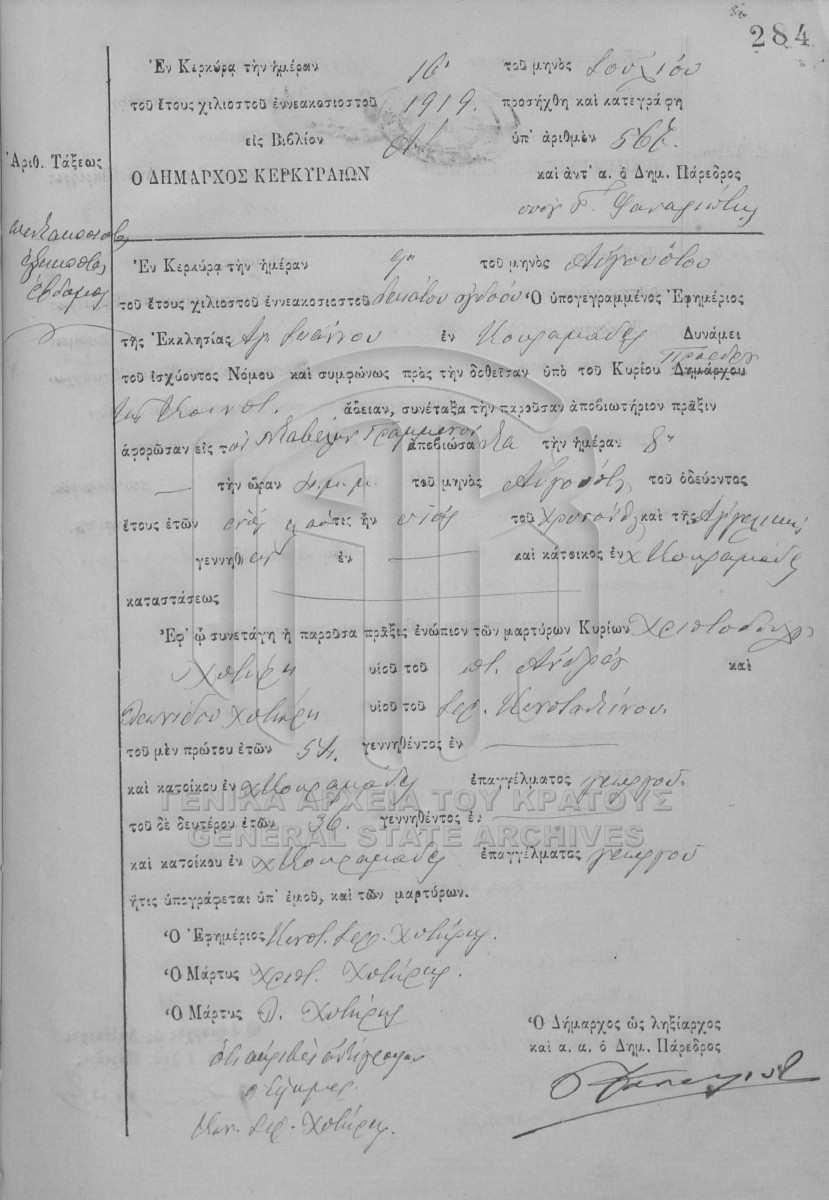 284
Ἐν Κερκύρᾳ τὴν ἡμέραν 16 τοῦ μηνὸς Ἰουλίου
τοῦ ἔτους χιλιοστοῦ ἐννεακοσιοστοῦ 1919. προσήχθη καὶ κατεγράφη
εἰς Βιβλίον ὑπ' ἀριθμὸν 567.
Ἀριθ. Τάξεως
Ο ΔΗΜΑΡΧΟΣ ΚΕΡΚΥΡΑΙΩΝ καὶ ἀντ' α. ὁ Δημ. Πάρεδρος
πεντακοσιοστὸς
ἑξηκοστὸς
ἕβδομος
Ἐν Κερκύρᾳ τὴν ἡμέραν 9η τοῦ μηνὸς Αὐγούστου
τοῦ ἔτους χιλιοστοῦ ἐννεακοσιοστοῦ δεκάτου ὀγδόου Ὁ ὑπογεγραμμένος Ἐφημέριος
τῆς Ἐκκλησίας Ἁγ. Ἰωάννου ἐν Κουραμάδες Δυνάμει
τοῦ ἰσχύοντος Νόμου καὶ συμφώνως πρὸς τὴν δοθεῖσαν ὑπὸ τοῦ Κυρίου Δημάρχου Προέδρου
τῆς Κοινοτ. ἄδειαν, συνέταξα τὴν παροῦσαν ἀποβιωτήριον πρᾶξιν
ἀφορῶσαν εἰς τὸν Γραμμένον ἀποβιώσαντα τὴν ἡμέραν 8η
— τὴν ὥραν τοῦ μηνὸς Αὐγούστου τοῦ ὁδεύοντος
ἔτους ἐτῶν ὅστις ἦν υἱὸς τοῦ καὶ τῆς Ἀγγελικῆς
γεννηθεὶς ἐν — καὶ κάτοικος ἐν χ Κουραμάδες
καταστάσεως —
Ἐφ' ᾧ συνετάγη ἡ παροῦσα πρᾶξις ἐνώπιον τῶν μαρτύρων Κυρίων Χριστοδούλου
Χυτήρη υἱοῦ τοῦ ποτ. Ἀνδρέου καὶ
Λεωνίδου Χυτήρη υἱοῦ τοῦ ἱερ. Κωνσταντίνου.
τοῦ μὲν πρώτου ἐτῶν 54. γεννηθέντος ἐν —
καὶ κατοίκου ἐν χ Κουραμάδες ἐπαγγέλματος γεωργοῦ.
ΓΕΝΙΚΑ ΑΡΧΕΙΑ ΤΟΥ ΚΡΑΤΟΥΣ
τοῦ δὲ δευτέρου ἐτῶν 36. γεννηθέντος ἐν —
GENERAL STATE ARCHIVES
καὶ κατοίκου ἐν χ Κουραμάδες ἐπαγγέλματος γεωργοῦ
ἥτις ὑπογράφεται ὑπ' ἐμοῦ, καὶ τῶν μαρτύρων.
Ὁ Ἐφημέριος Κωνστ. ἱερ. Χυτήρης.
Ὁ Μάρτυς Χριστ. Χυτήρης.
Ὁ Μάρτυς Λ. Χυτήρης
Ὁ Δήμαρχος ὡς ληξίαρχος
καὶ α. α. ὁ Δημ. Πάρεδρος
ὅτι ἀκριβὲς ἀντίγραφον
ὁ Ἐφημερ.
Κων. ἱερ. Χυτήρης.